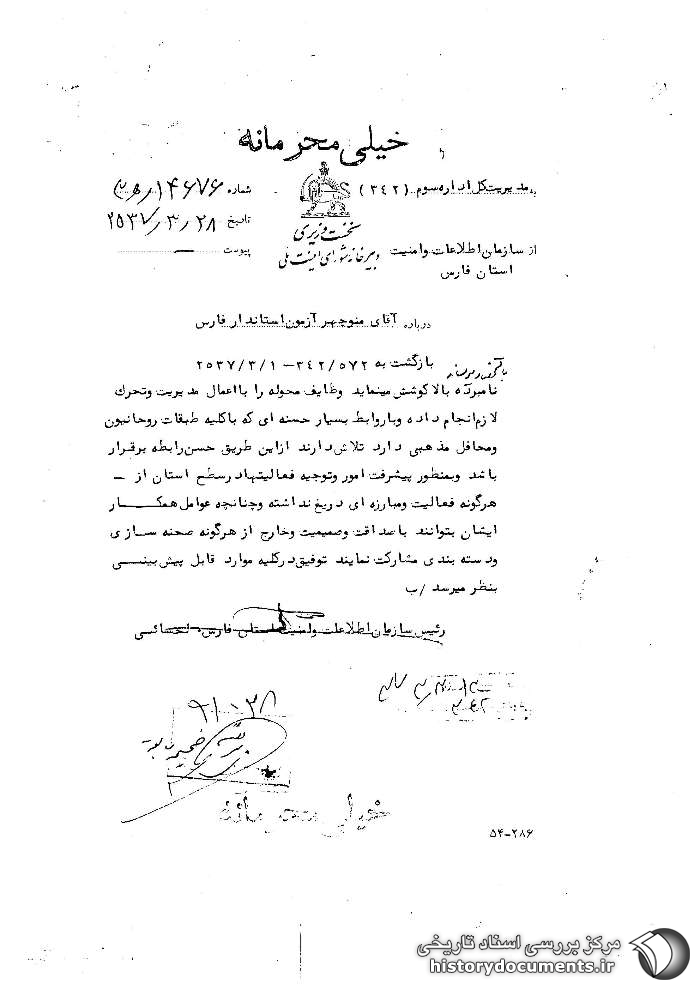 خیلی محرمانه
به مدیریت کل اداره سوم (۳٤۲)
شماره ۱۴۶۷۶
تاریخ ۲۵۳۷/۳/۲۸
پیوست —
نخست وزیری
دبیرخانه شورای امنیت ملی
از سازمان اطلاعات وامنیت
استان فارس
درباره آقای منوچهر آزمون استاندار فارس
بازگشت به ۳٤۲/۵۷۲ – ۲۵۳۷/۳/۱
نامبرده بالا کوشش مینماید وظایف محوله را با اعمال مدیریت وتحرك
لازم انجام داده وبا روابط بسیار حسنه ای که باکلیه طبقات روحانیون
ومحافل مذهبی دارد تلاش دارند ازاین طریق حسن رابطه برقرار
باشد وبمنظور پیشرفت امور وتوجیه فعالیتها در سطح استان از –
هرگونه فعالیت ومبارزه ای دریغ نداشته وچنانچه عوامل همکار
ایشان بتوانند باصداقت وصمیمیت وخارج از هرگونه صحنه سازی
ودسته بندی مشارکت نمایند توفیق درکلیه موارد قابل پیش بینی
بنظر میرسد /ب
رئیس سازمان اطلاعات وامنیت استان فارس
خیلی محرمانه
۵۴-۲۸۶
مرکز بررسی اسناد تاریخی
historydocuments.ir